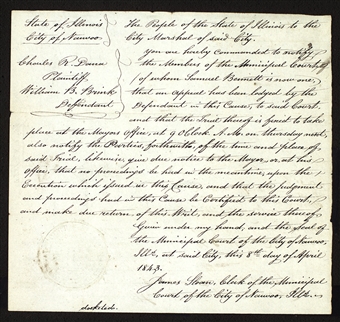 State of Illinois
City of Nauvoo
Charles R. Dana
Plaintiff,
William B. Brink
Defendant
The People of the State of Illinois to the
City Marshal of said City.
You are hereby commanded to notify
the Members of the Municipal Court,
(of whom Samuel Bennett is now one,
that an appeal has been lodged by the
Defendant in this Cause, to said Court.
and that the Trial thereof is fixed to take
place at the Mayors Office, at 9 OClock A.M. on thursday next,
also notify the Parties, forthwith, of the time and place of
said Trial, likewise give due notice to the Mayor, or at his
office, that no proceedings be had in the meantime, upon the
Execution which issued in this Cause, and that the judgment
and proceedings had in this Cause be Certified to this Court,
and make due return of this Writ, and the service thereof
Given under my hand, and the Seal of
the Municipal Court of the City of Nauvoo,
Ills., at said City, this 8th day of April
1843.
James Sloan, Clerk of the Municipal
Court, of the City of Nauvoo, Ills.
docketed.